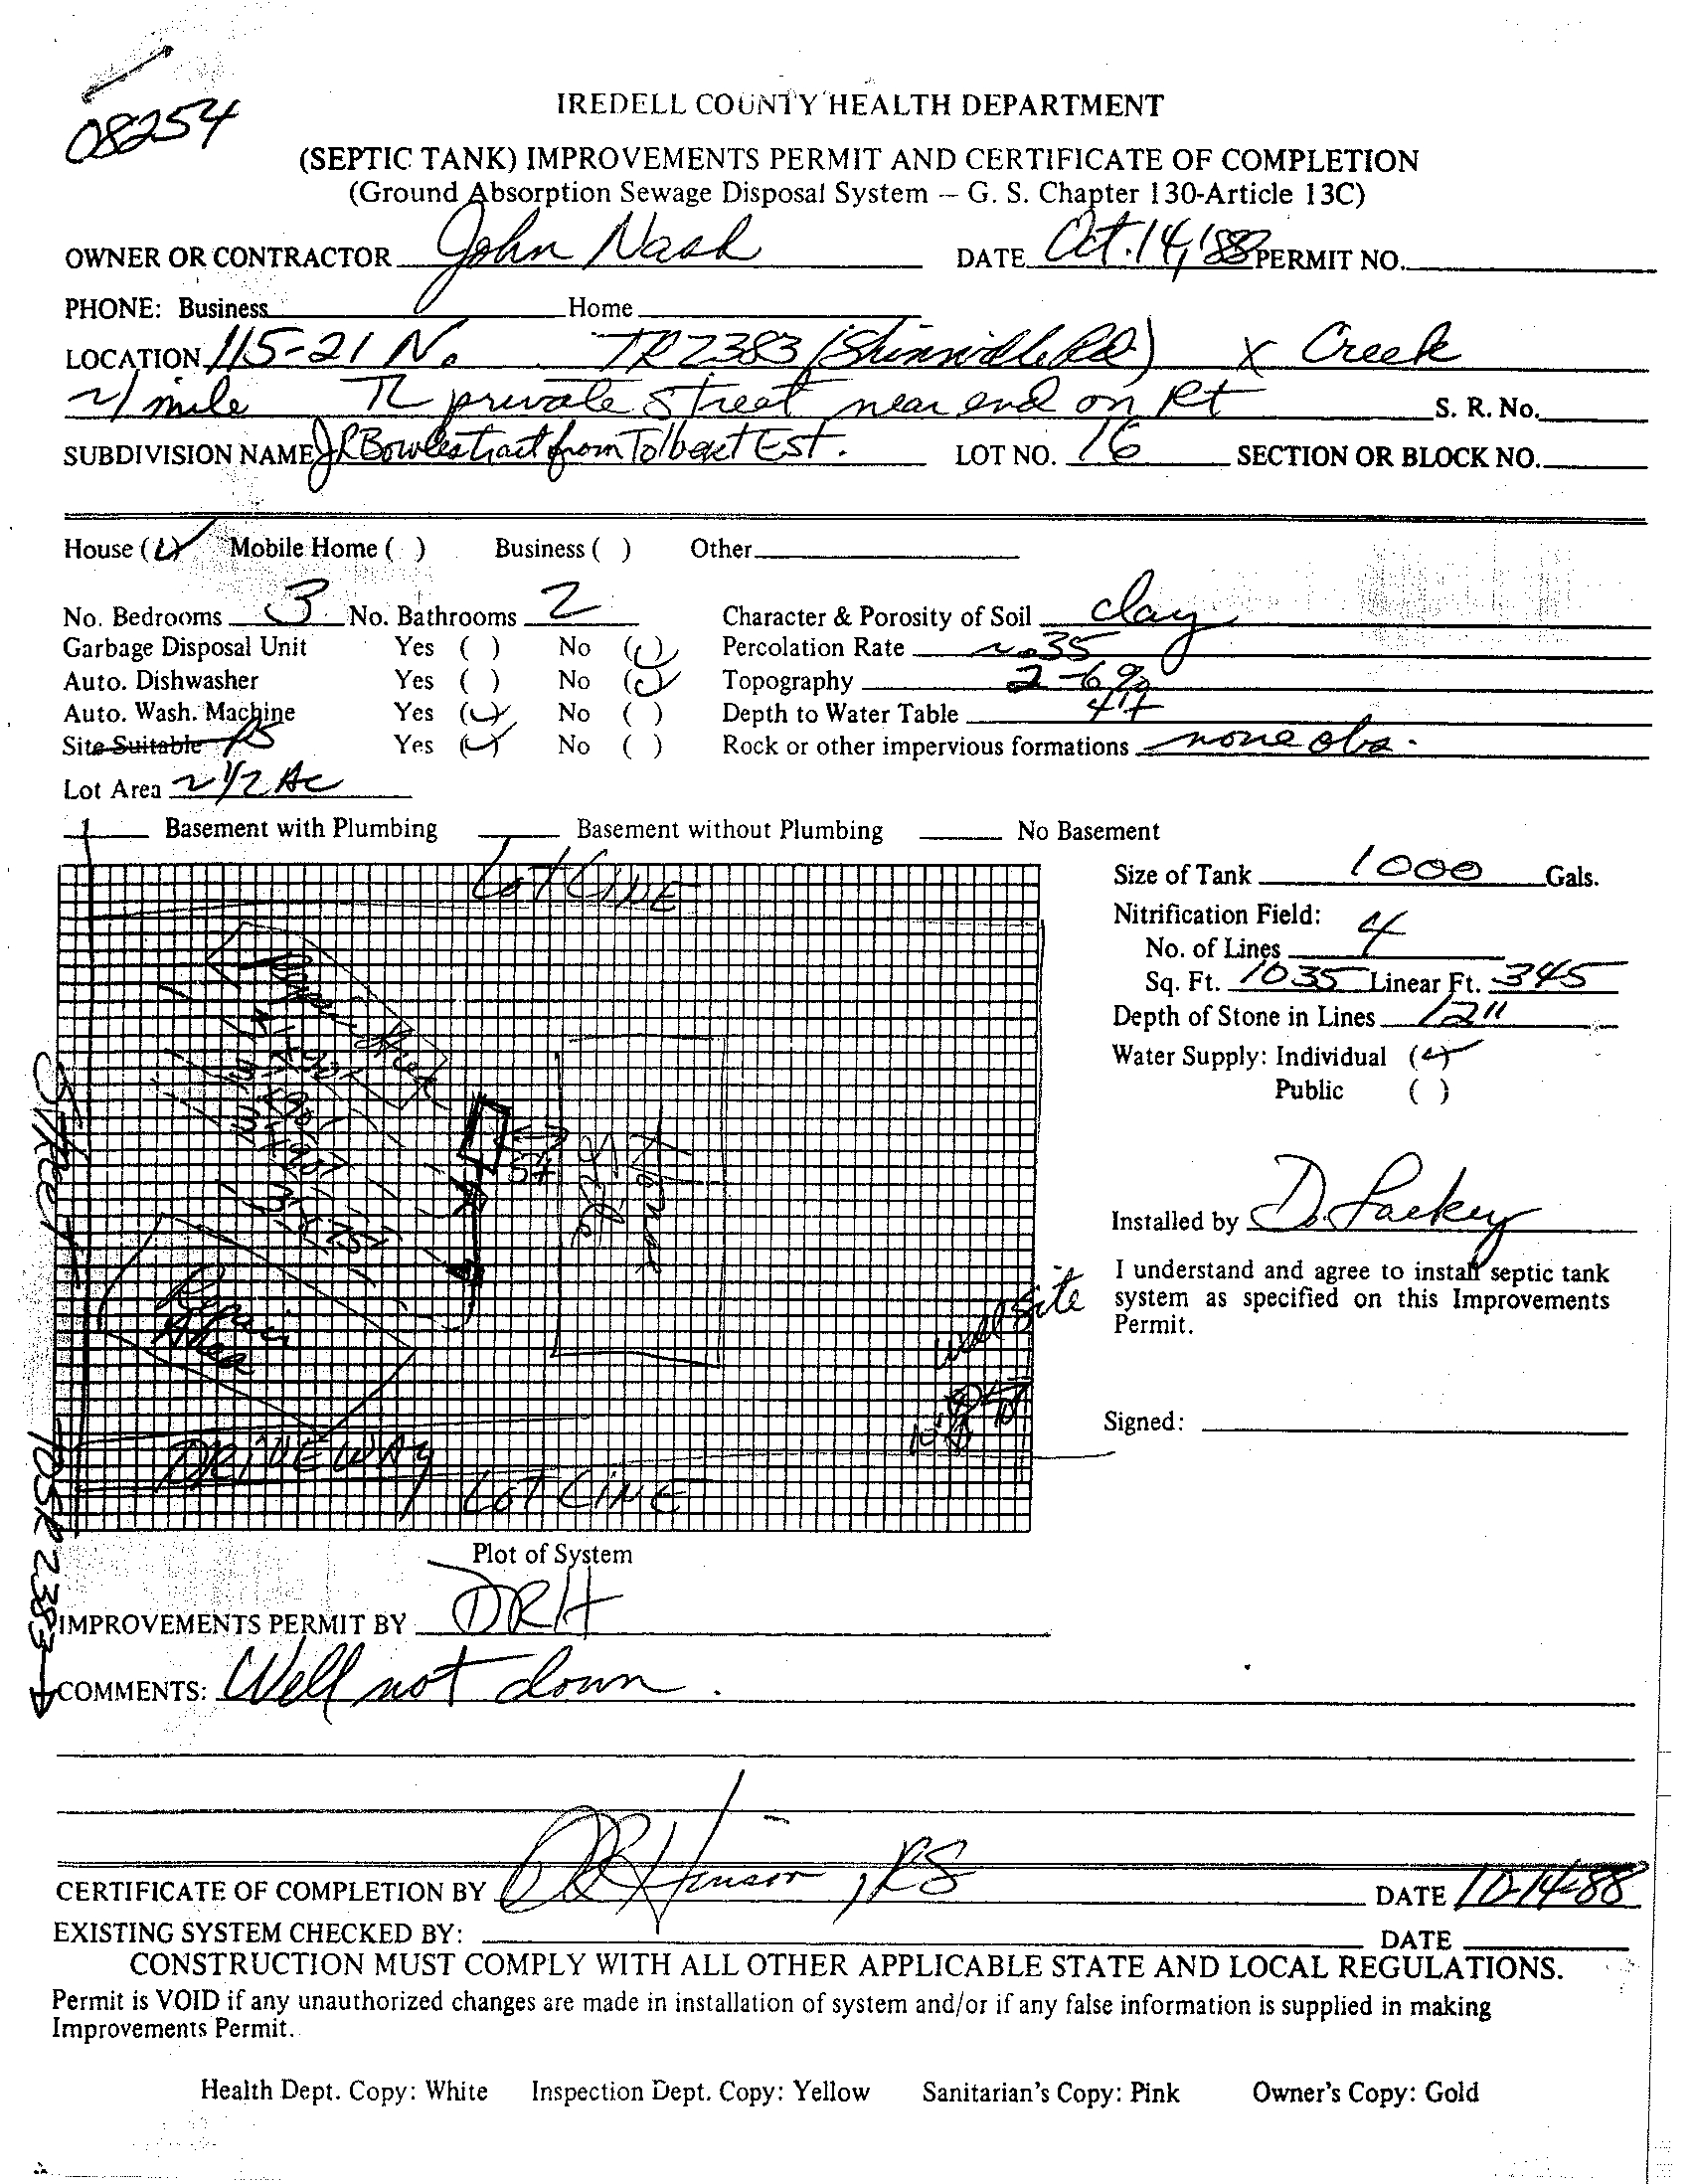 08254
IREDELL COUNTY HEALTH DEPARTMENT
(SEPTIC TANK) IMPROVEMENTS PERMIT AND CERTIFICATE OF COMPLETION
(Ground Absorption Sewage Disposal System – G. S. Chapter 130-Article 13C)
OWNER OR CONTRACTOR John Nash DATE Oct. 14, '88 PERMIT NO.
PHONE: Business Home
LOCATION 115-21 No TR 2383 (Shinnville Rd) X Creek
~1 mile TL private street near end on Rt S. R. No.
SUBDIVISION NAME JR Bowles tract from Tolbert Est. LOT NO. 16 SECTION OR BLOCK NO.
House (✓) Mobile Home ( ) Business ( ) Other
No. Bedrooms 3 No. Bathrooms 2 Character & Porosity of Soil clay
Garbage Disposal Unit Yes ( ) No (✓) Percolation Rate ~.35
Auto. Dishwasher Yes ( ) No (✓) Topography 2-6%
Auto. Wash. Machine Yes (✓) No ( ) Depth to Water Table
Site Suitable PS Yes (✓) No ( ) Rock or other impervious formations none obs.
Lot Area ~1/2 Ac
Basement with Plumbing Basement without Plumbing No Basement
Lot LINE
Size of Tank 1000 Gals.
Nitrification Field:
No. of Lines 4
Sq. Ft. 1035 Linear Ft. 345
Depth of Stone in Lines 12"
Water Supply: Individual (✓)
Public ( )
Street
House
Site
Repair
Area
well site
Installed by D. Lackey
I understand and agree to install septic tank
system as specified on this Improvements
Permit.
Signed:
DRIVEWAY
Lot LINE
TO SR 2383
Plot of System
IMPROVEMENTS PERMIT BY DRH
COMMENTS: Well not down.
CERTIFICATE OF COMPLETION BY DR Hinson, RS DATE 10-14-88
EXISTING SYSTEM CHECKED BY: DATE
CONSTRUCTION MUST COMPLY WITH ALL OTHER APPLICABLE STATE AND LOCAL REGULATIONS.
Permit is VOID if any unauthorized changes are made in installation of system and/or if any false information is supplied in making
Improvements Permit.
Health Dept. Copy: White Inspection Dept. Copy: Yellow Sanitarian's Copy: Pink Owner's Copy: Gold